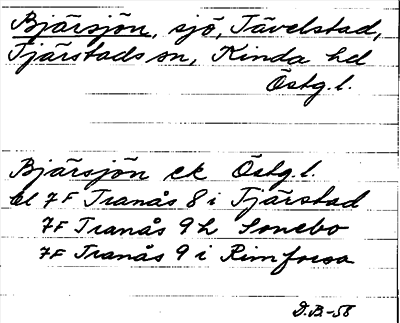 Bjärsjön, sjö, Tävelstad,
Tjärstads sn, Kinda hd
Östg.l.
Bjärsjön ek Östg.l.
bl 7F Tranås 8 i Tjärstad
7F Tranås 9 h Sonebo
7F Tranås 9 i Rimforsa
D.B.-58